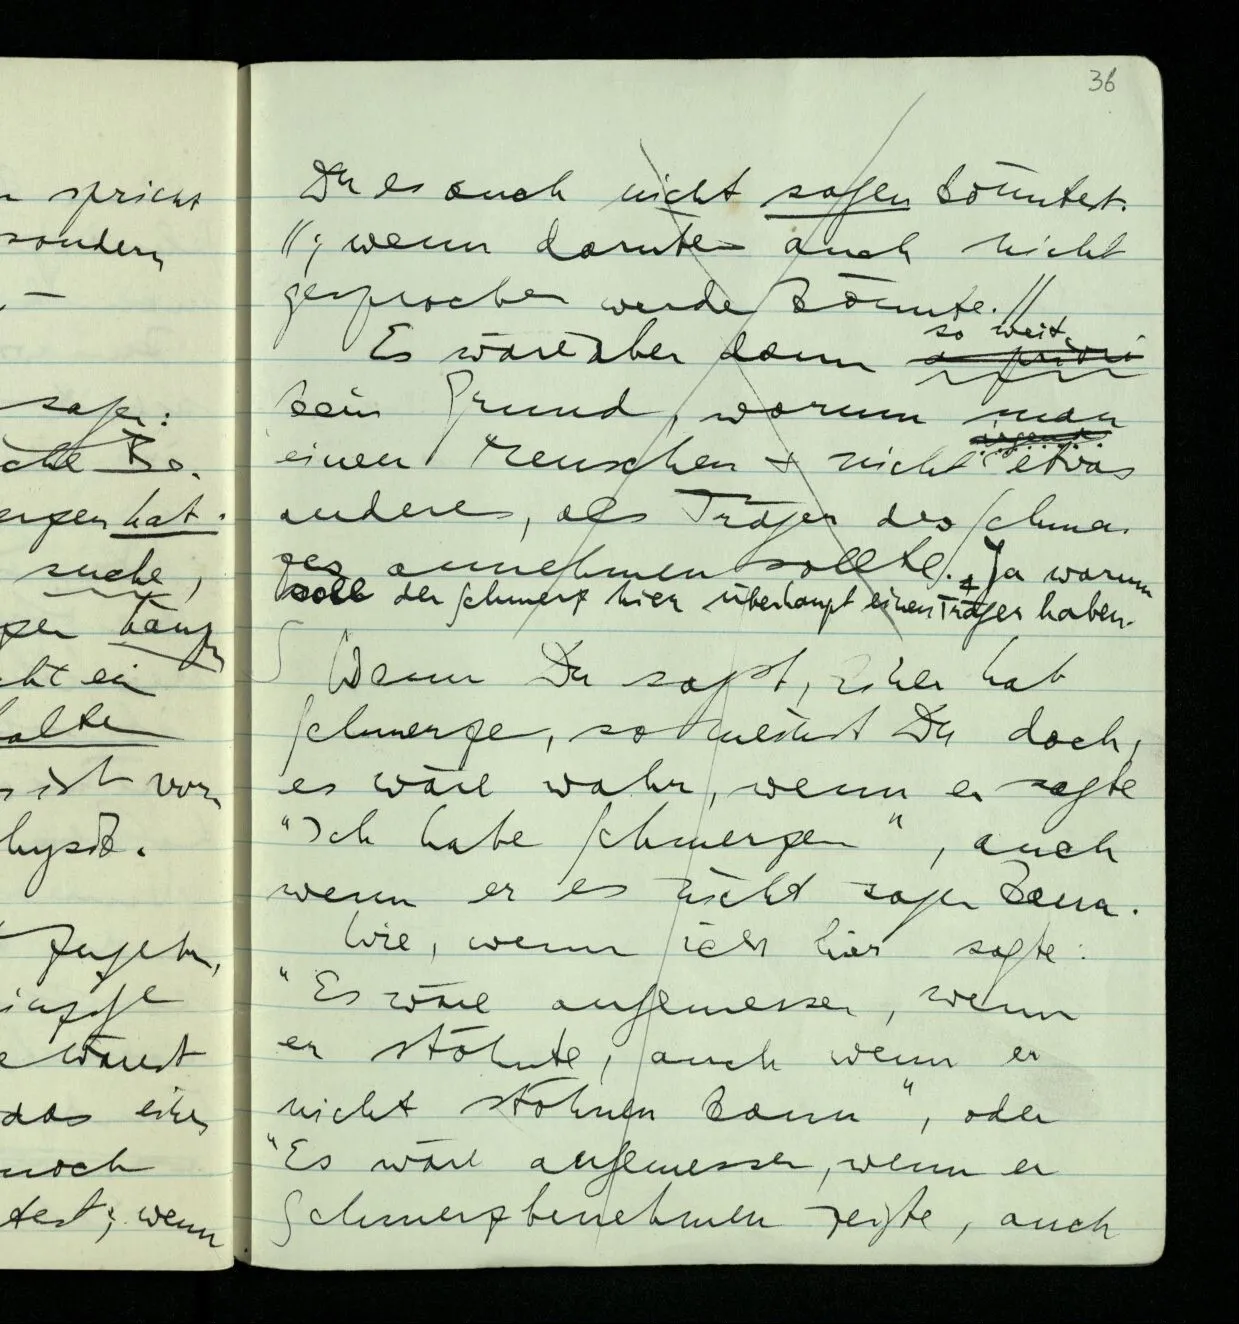 36
n spricht
sondern
—
sagen:
che Be.
erzen hat.
suche,
gen kann
cht ein
halte
s ist von
hysik.
zugeben,
e wärest
das eine
noch
test; wenn
Du es auch nicht sagen könntest.
//; wenn darunter auch nicht
gesprochen werden könnte.//
Es wäre aber dann so weit a priori
kein Grund, warum man
einen Menschen & nicht irgend etwas
anderes, als Träger des Schmer-
zes annehmen sollte. Ja warum
soll der Schmerz hier überhaupt einen Träger haben.
∫ Wenn Du sagst, er hat
Schmerzen, so meinst Du doch,
es wäre wahr, wenn er sagte
"Ich habe Schmerzen", auch
wenn er es nicht sagen kann.
Wie, wenn ich hier sagte:
"Es wäre angemessen, wenn
er stöhnte, auch wenn er
nicht stöhnen kann", oder
"Es wäre angemessen, wenn er
Schmerzbenehmen zeigte, auch